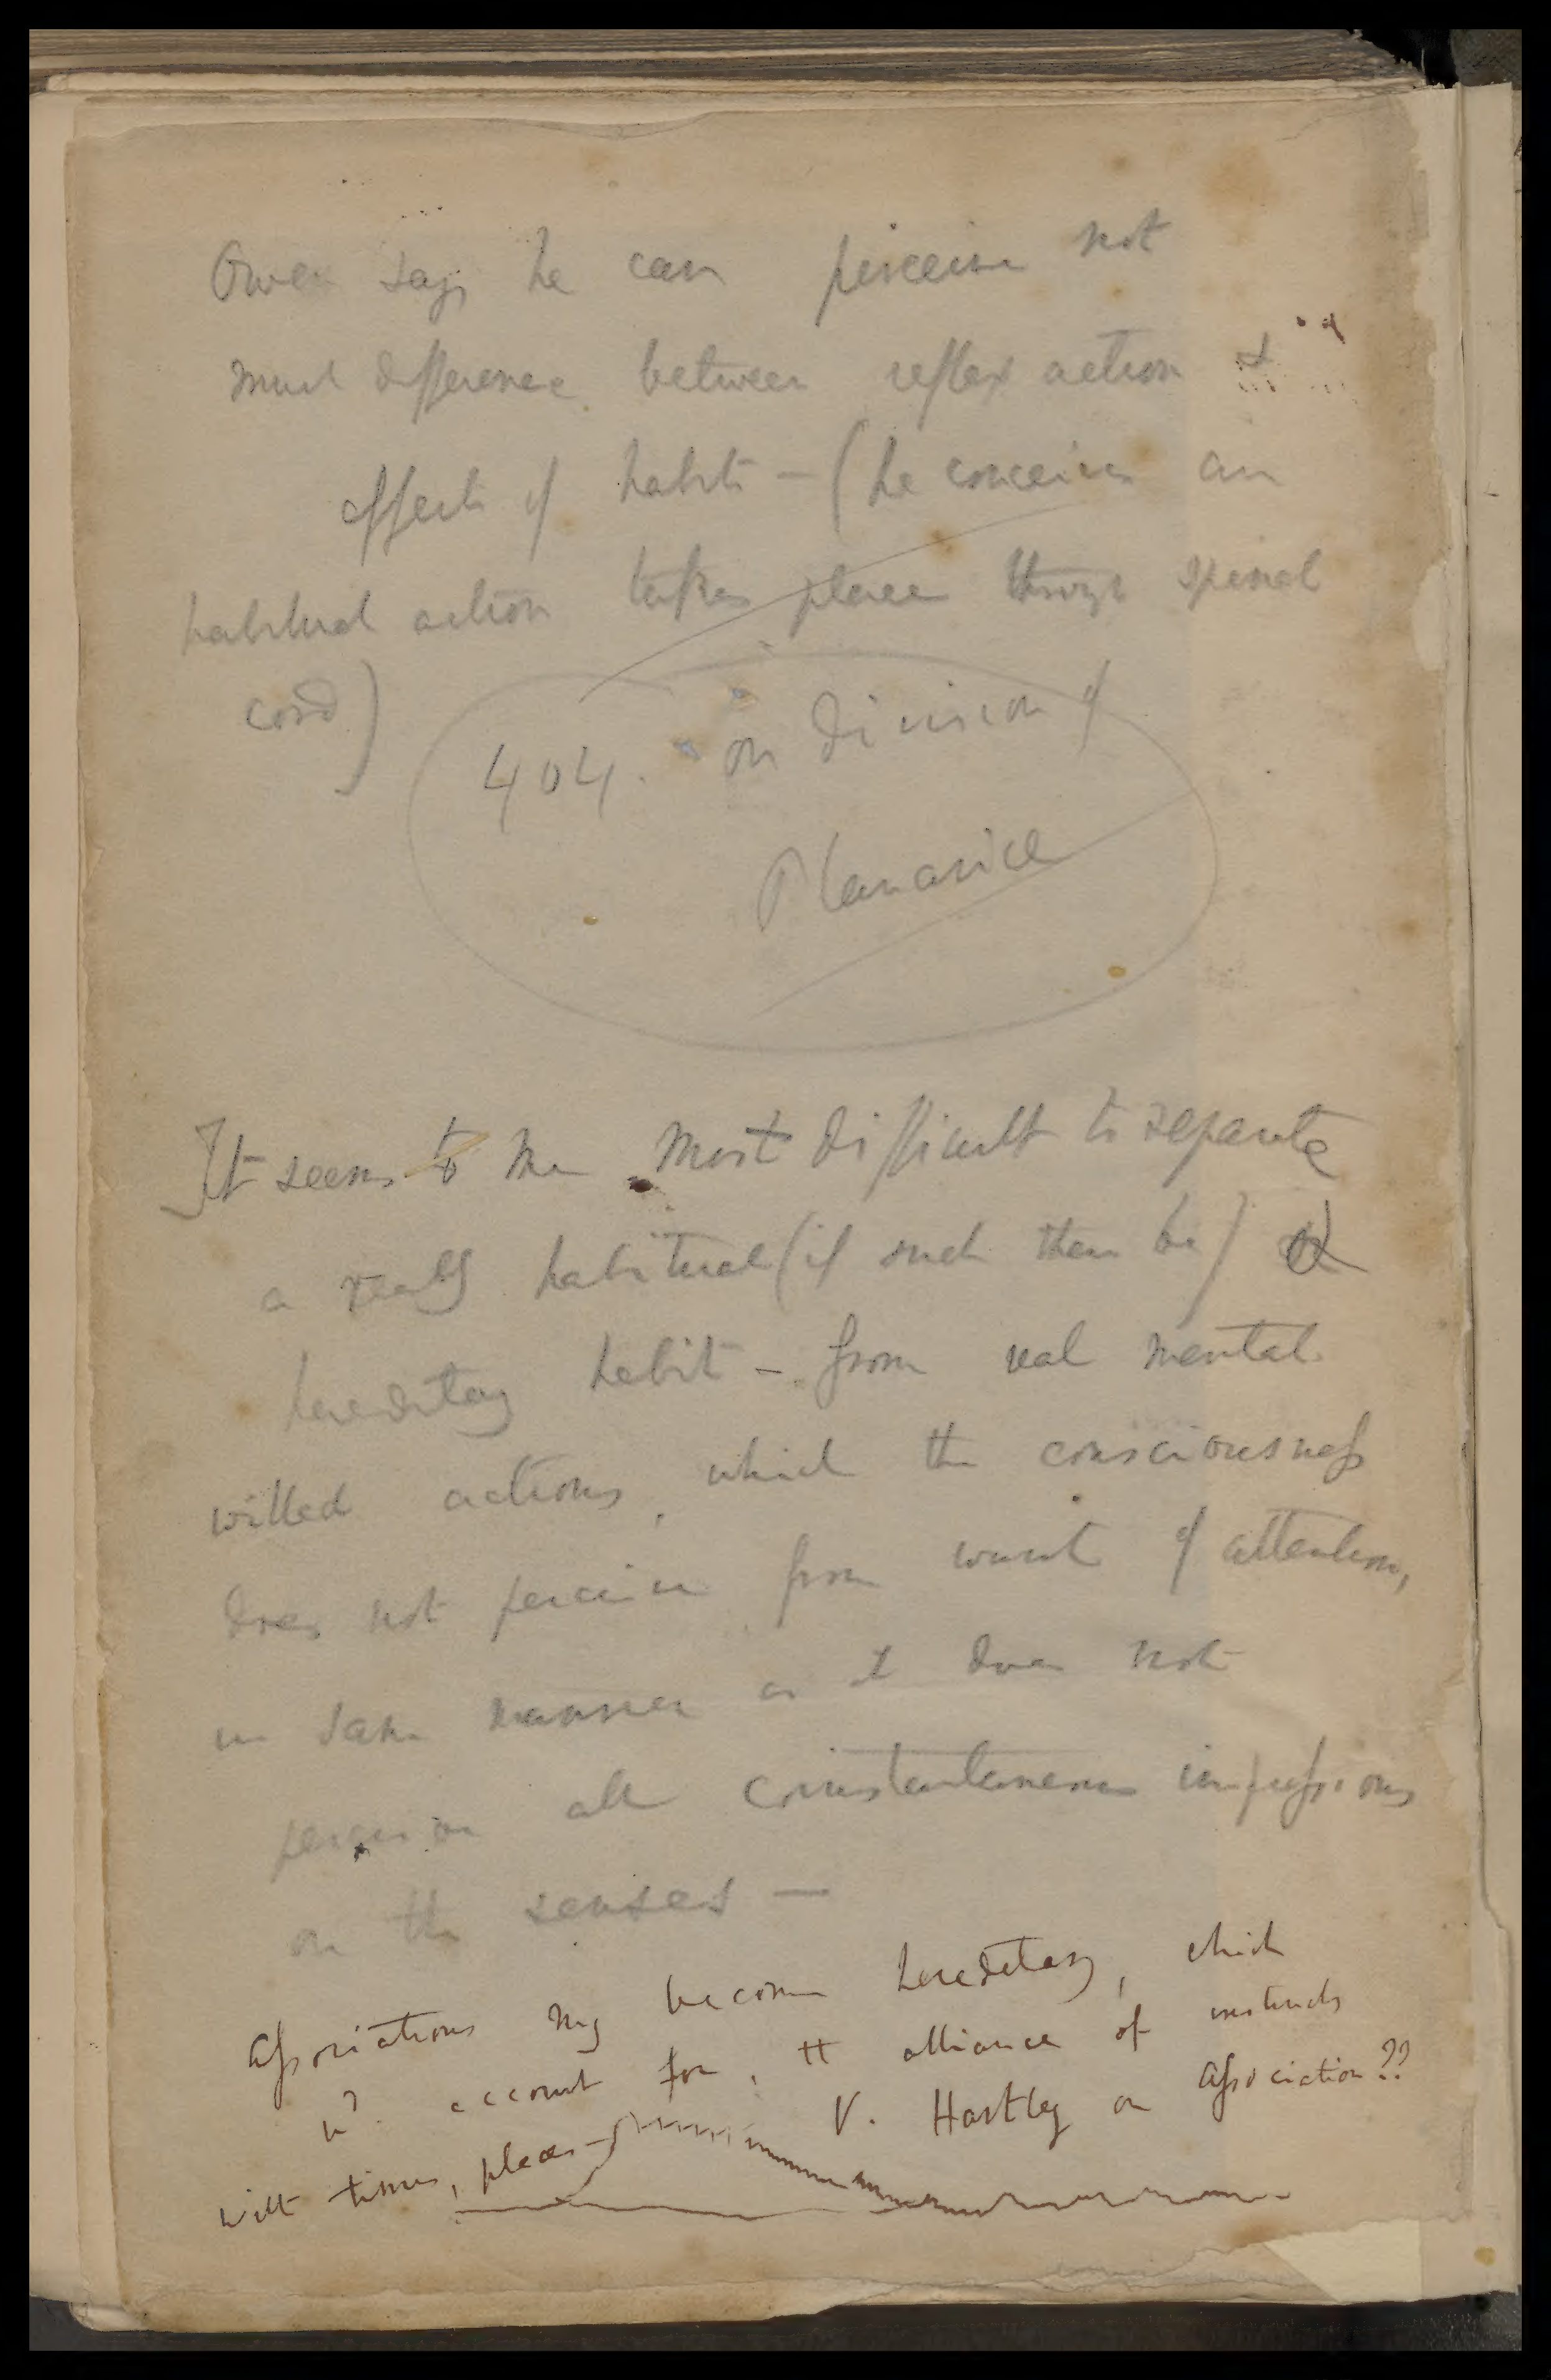 Owen says he can perceive not
much difference between reflex action &
effects of habit – (he conceives an
habitual action takes place through spinal
cord)
404. on division of
Planariæ
It seems to me most difficult to separate
a really habitual (if such there be) or
hereditary habit – from real mental
willed actions, which the consciousness
does not perceive from want of attention,
in same manner as it does not
perceive all instantaneous impressions
on the senses —
Associations my become hereditary, which
wd. account for, the alliance of instincts
with times, places – V. Hartley on Association??